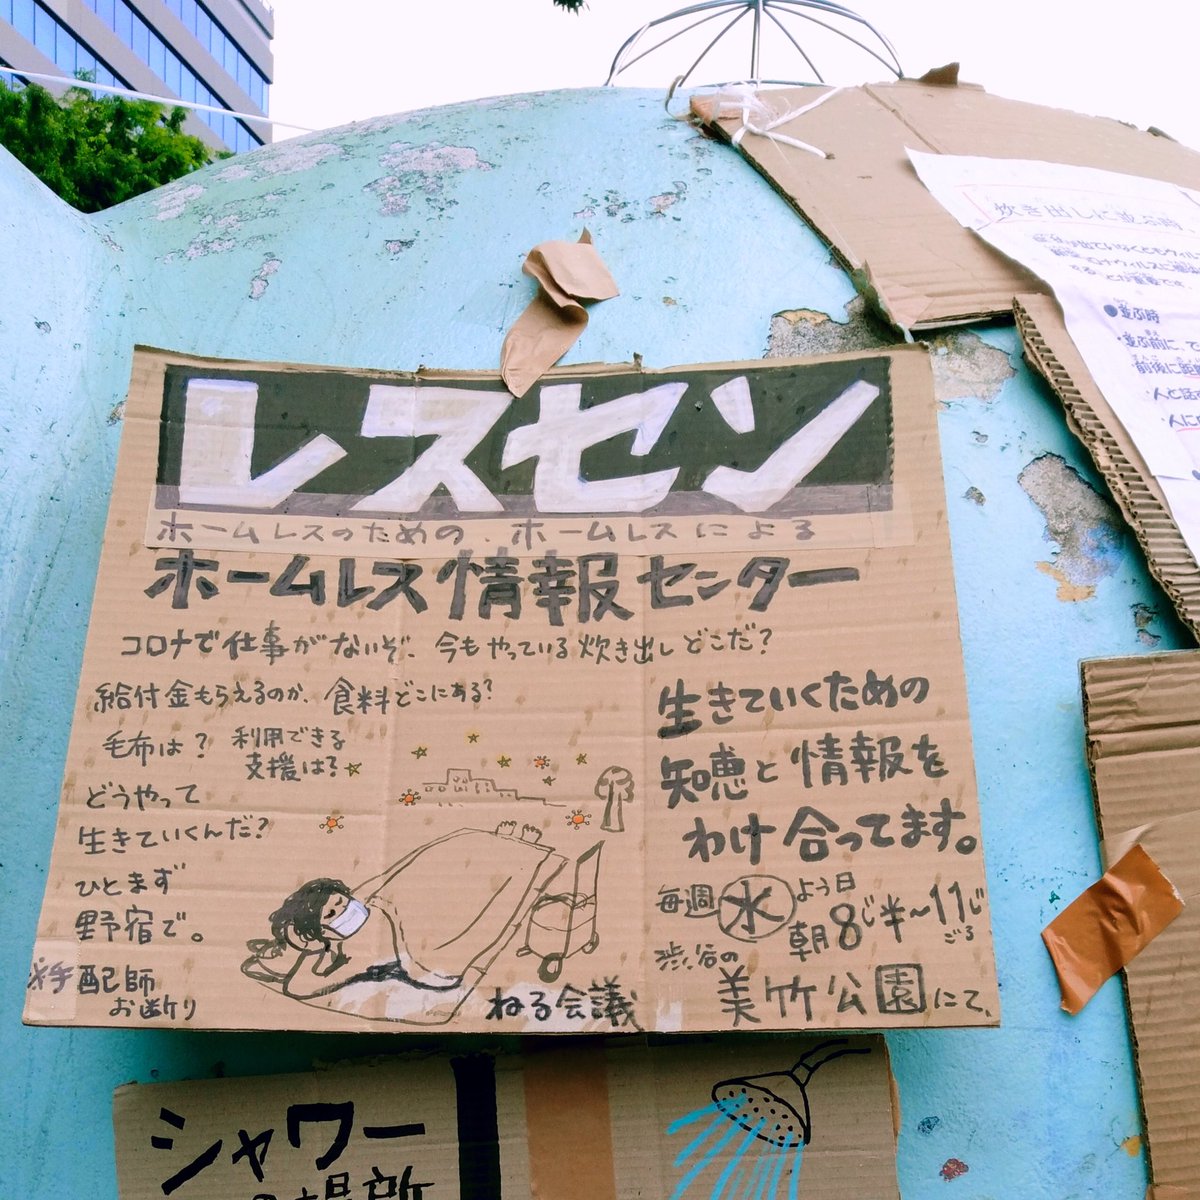 レスセン
ホームレスのための、ホームレスによる
ホームレス情報センター
コロナで仕事がないぞ、今もやっている炊き出しどこだ?
給付金もらえるのか、食料どこにある?
毛布は? 利用できる
支援は?
どうやって
生きていくんだ?
ひとまず
野宿で。
手配師
お断り
ねる会議
生きていくための
知恵と情報を
わけ合ってます。
毎週 水 よう日
朝8じ半〜11じ
ごろ
渋谷の
美竹公園にて、
シャワー
場所
炊き出しに並ぶ時
●並ぶ時
・並ぶ前に、